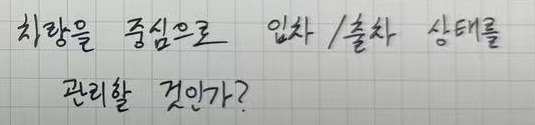 차량을 중심으로 입차 / 출차 상태를
관리할 것인가?